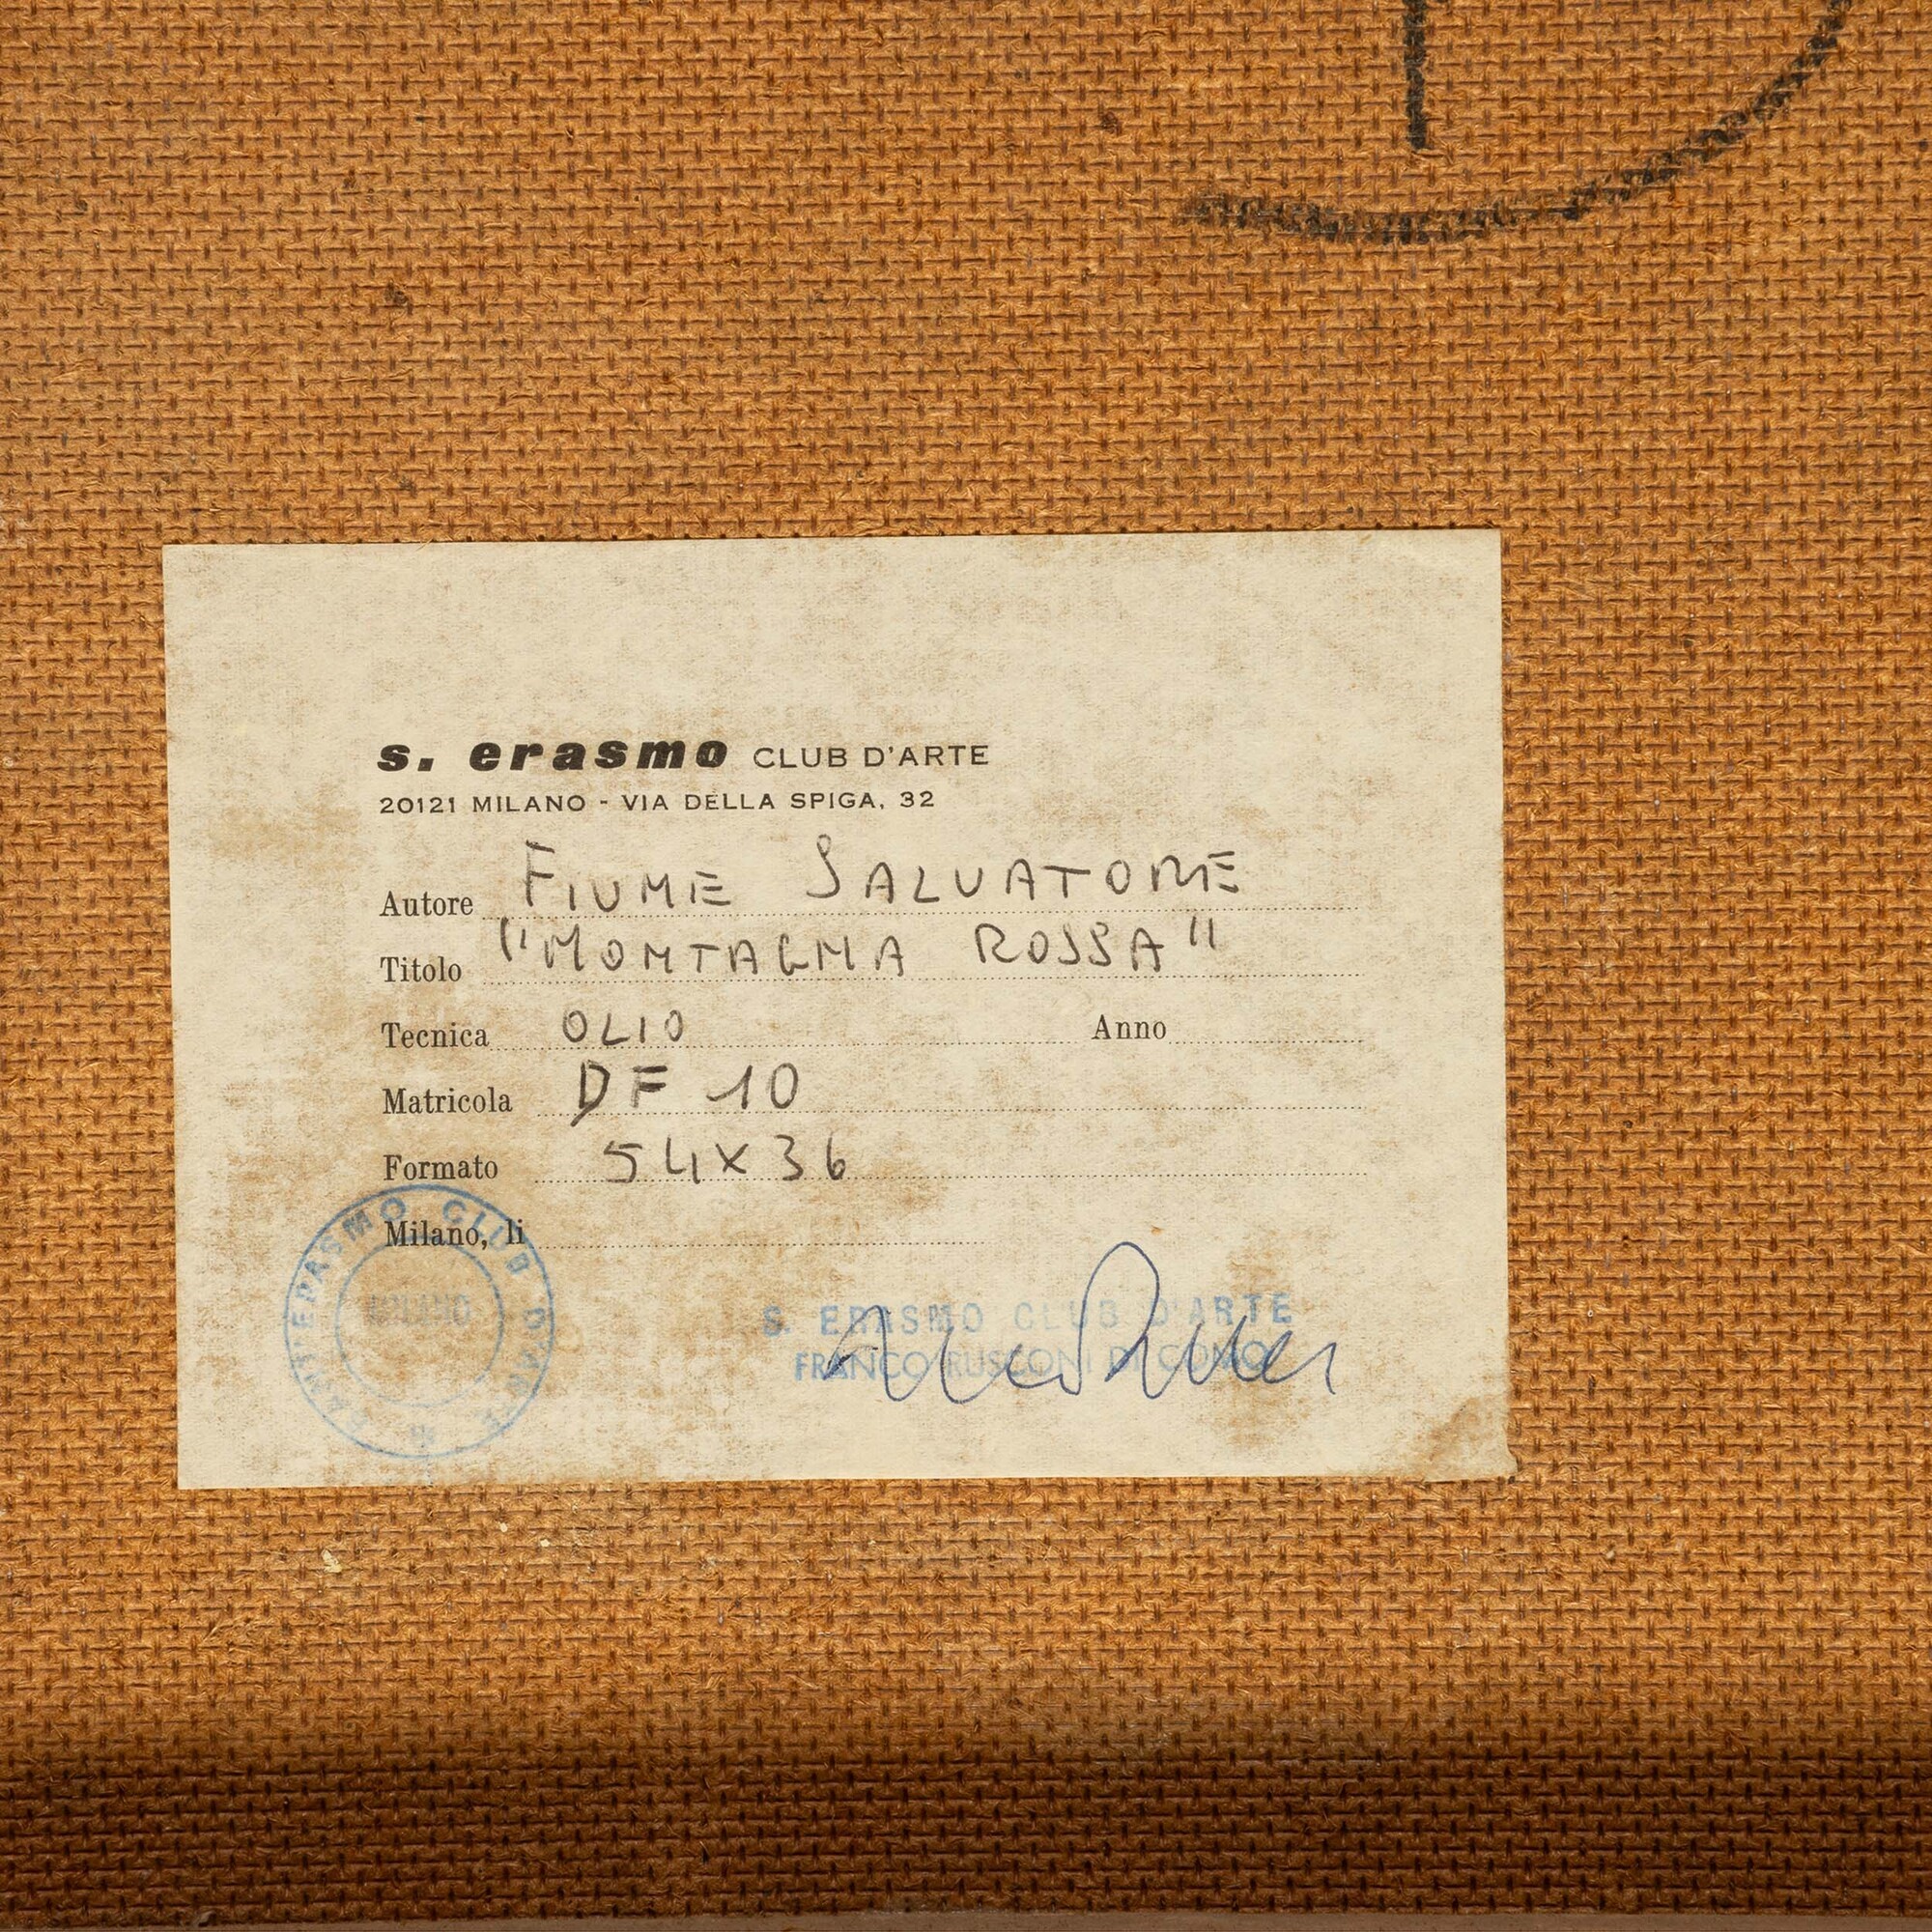 s. erasmo CLUB D'ARTE
20121 MILANO - VIA DELLA SPIGA, 32
Autore FIUME SALVATORE
Titolo "MONTAGNA ROSSA"
Tecnica OLIO Anno
Matricola DF 10
Formato 54x36
Milano, li
SANT'ERASMO CLUB D'ARTE
MILANO
S. ERASMO CLUB D'ARTE
FRANCO RUSCONI DI COMO